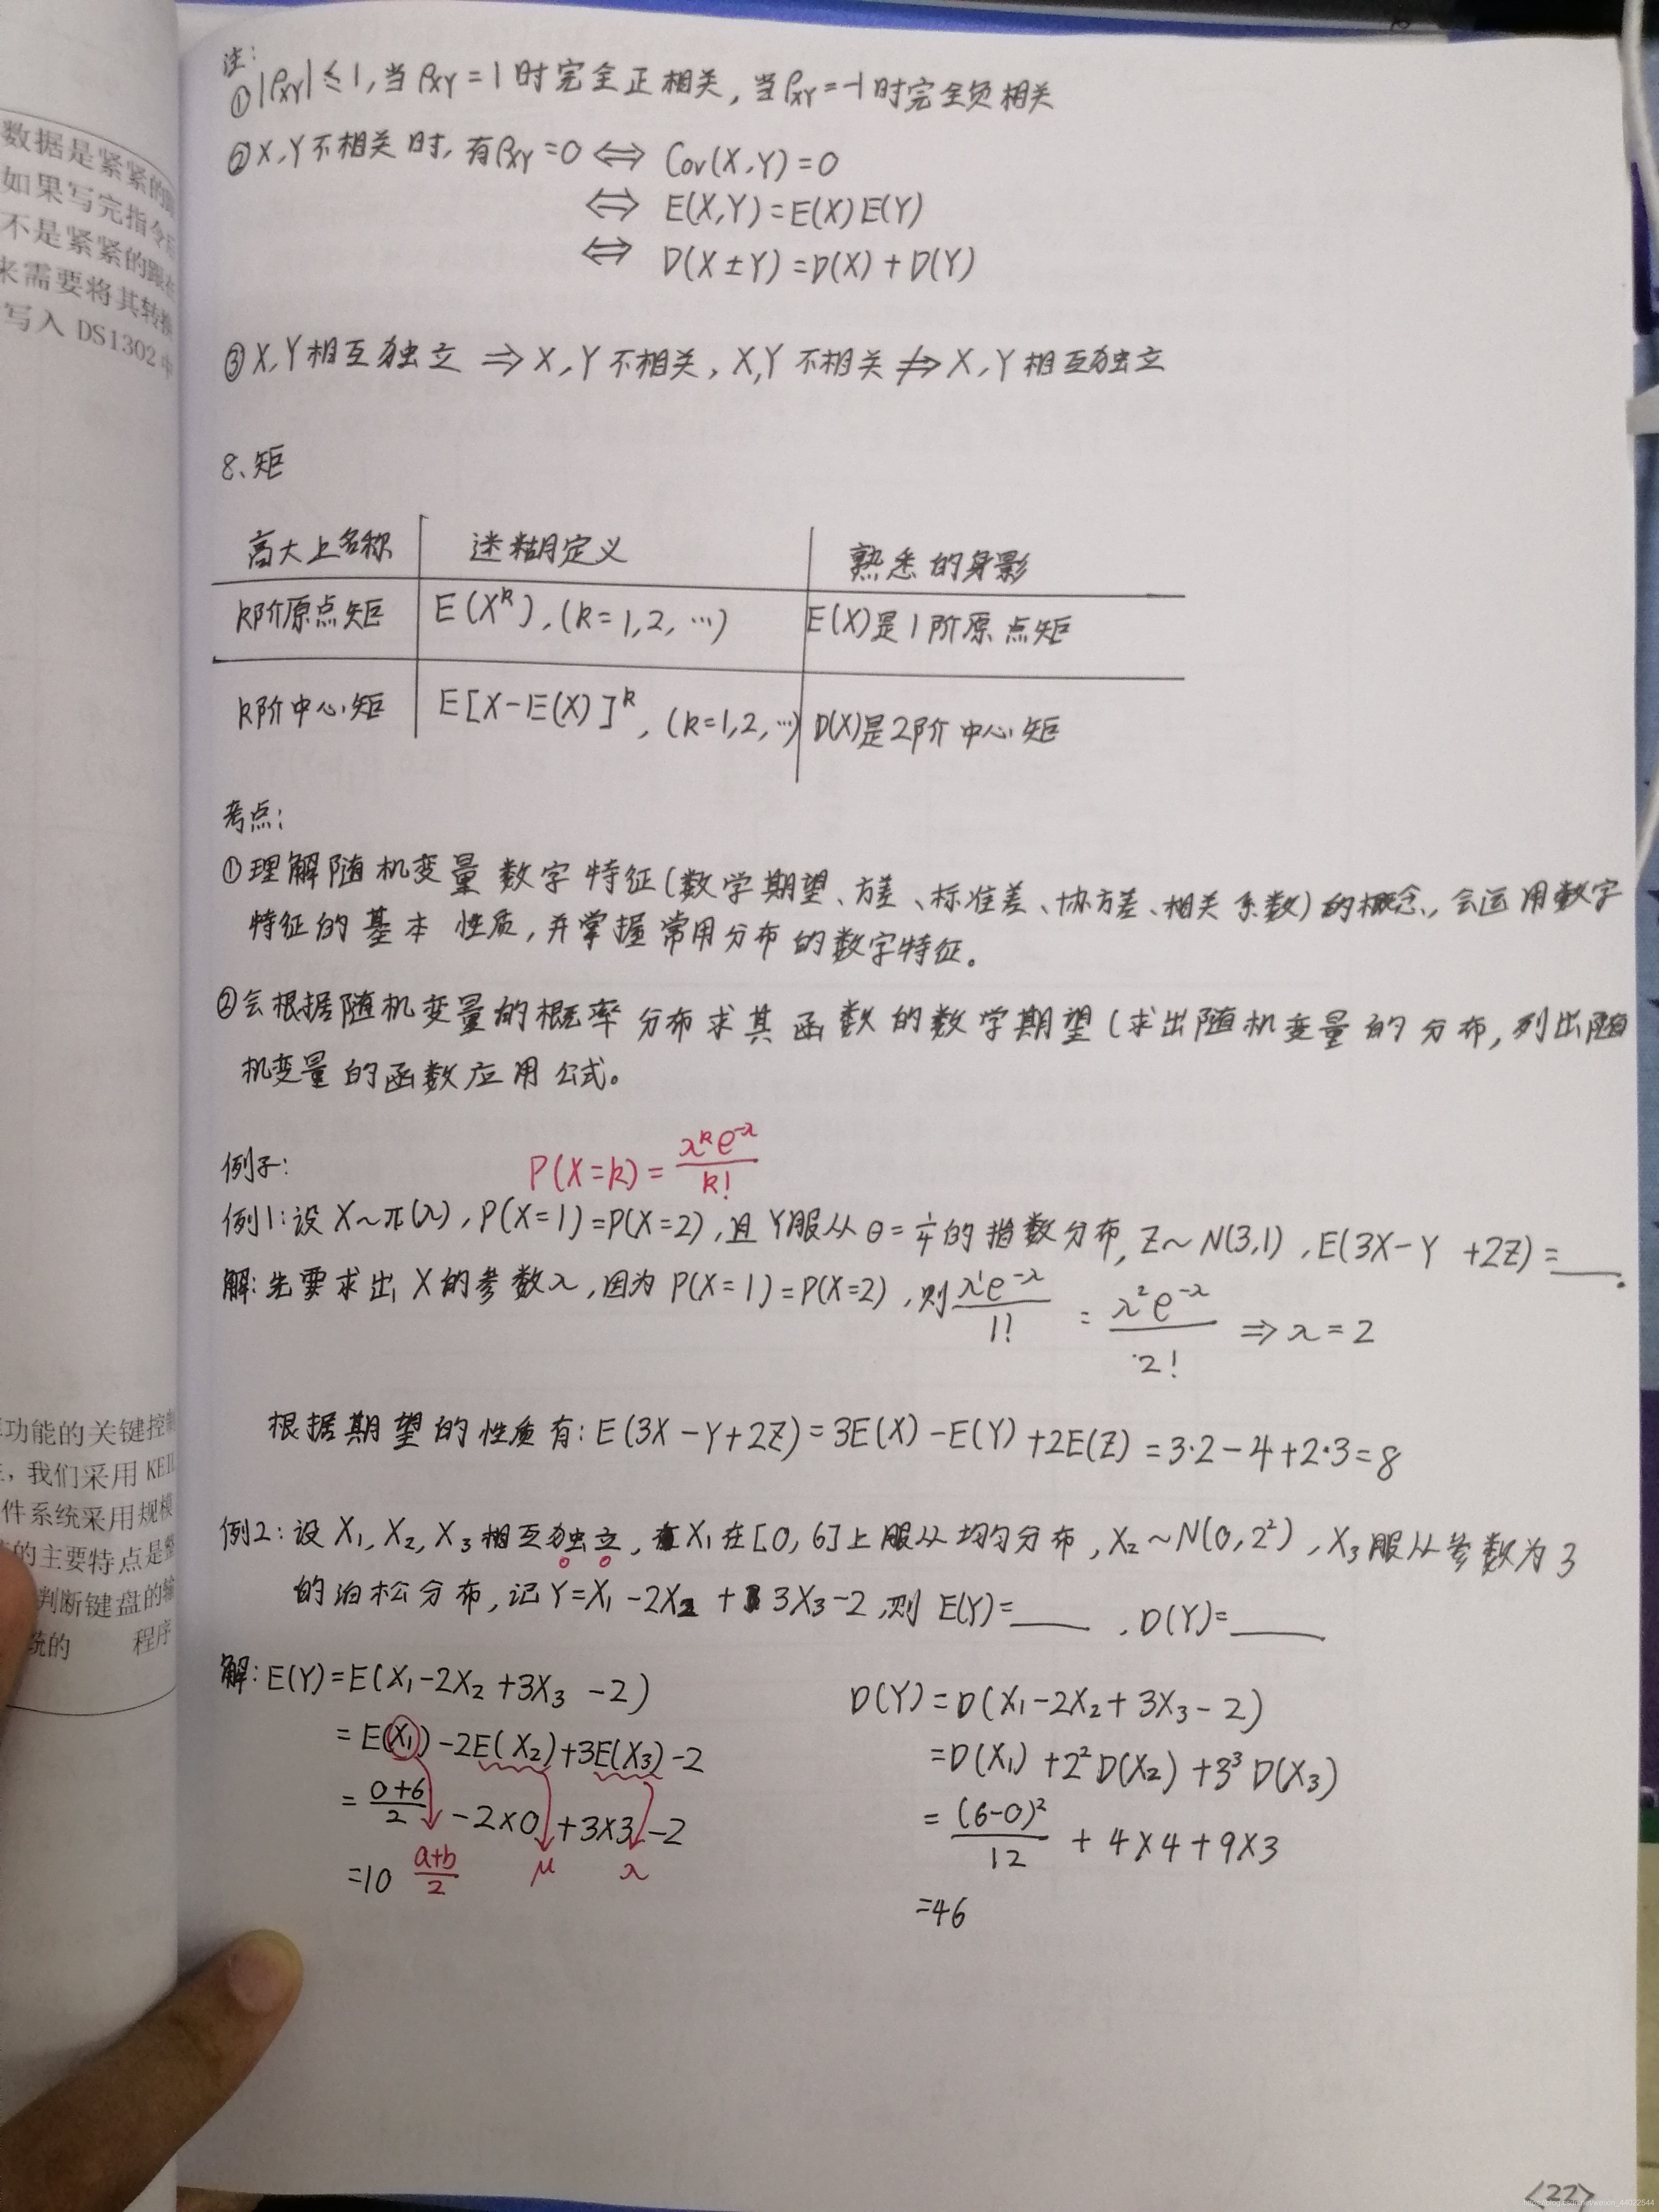 数据是紧紧的
如果写完指令
不是紧紧的跟
来需要将其转换
写入 DS1302 中
注:
①|ρXY|≤1,当ρXY=1时完全正相关,当ρXY=-1时完全负相关
②X,Y不相关时,有ρXY=0 ⇔ Cov(X,Y)=0
⇔ E(X,Y)=E(X)E(Y)
⇔ D(X±Y)=D(X)+D(Y)
③X,Y相互独立 ⇒ X,Y不相关, X,Y不相关 ⇏ X,Y相互独立
8、矩
高大上名称 迷糊定义 熟悉的身影
k阶原点矩 E(X^k),(k=1,2,…) E(X)是1阶原点矩
k阶中心矩 E[X-E(X)]^k,(k=1,2,…) D(X)是2阶中心矩
考点:
①理解随机变量数字特征(数学期望、方差、标准差、协方差、相关系数)的概念,会运用数字
特征的基本性质,并掌握常用分布的数字特征。
②会根据随机变量的概率分布求其函数的数学期望(求出随机变量的分布,列出随
机变量的函数应用公式。
例子: P(X=k)=λ^k e^-λ/k!
例1:设X~π(λ),P(X=1)=P(X=2),且Y服从θ=1/4的指数分布,Z~N(3,1),E(3X-Y+2Z)=___.
解:先要求出X的参数λ,因为P(X=1)=P(X=2),则 λ^1 e^-λ/1! = λ^2 e^-λ/2! ⇒ λ=2
根据期望的性质有:E(3X-Y+2Z)=3E(X)-E(Y)+2E(Z)=3·2-4+2·3=8
例2:设X₁,X₂,X₃相互独立,X₁在[0,6]上服从均匀分布,X₂~N(0,2²),X₃服从参数为3
的泊松分布,记Y=X₁-2X₂+3X₃-2,则E(Y)=____,D(Y)=____
解:E(Y)=E(X₁-2X₂+3X₃-2) D(Y)=D(X₁-2X₂+3X₃-2)
=E(X₁)-2E(X₂)+3E(X₃)-2 =D(X₁)+2²D(X₂)+3³D(X₃)
=(0+6)/2-2×0+3×3-2 =(6-0)²/12+4×4+9×3
=10 (a+b)/2 μ λ =46
功能的关键控制
,我们采用 KEIL
件系统采用规模
的主要特点是整
判断键盘的输
统的 程序
<22>